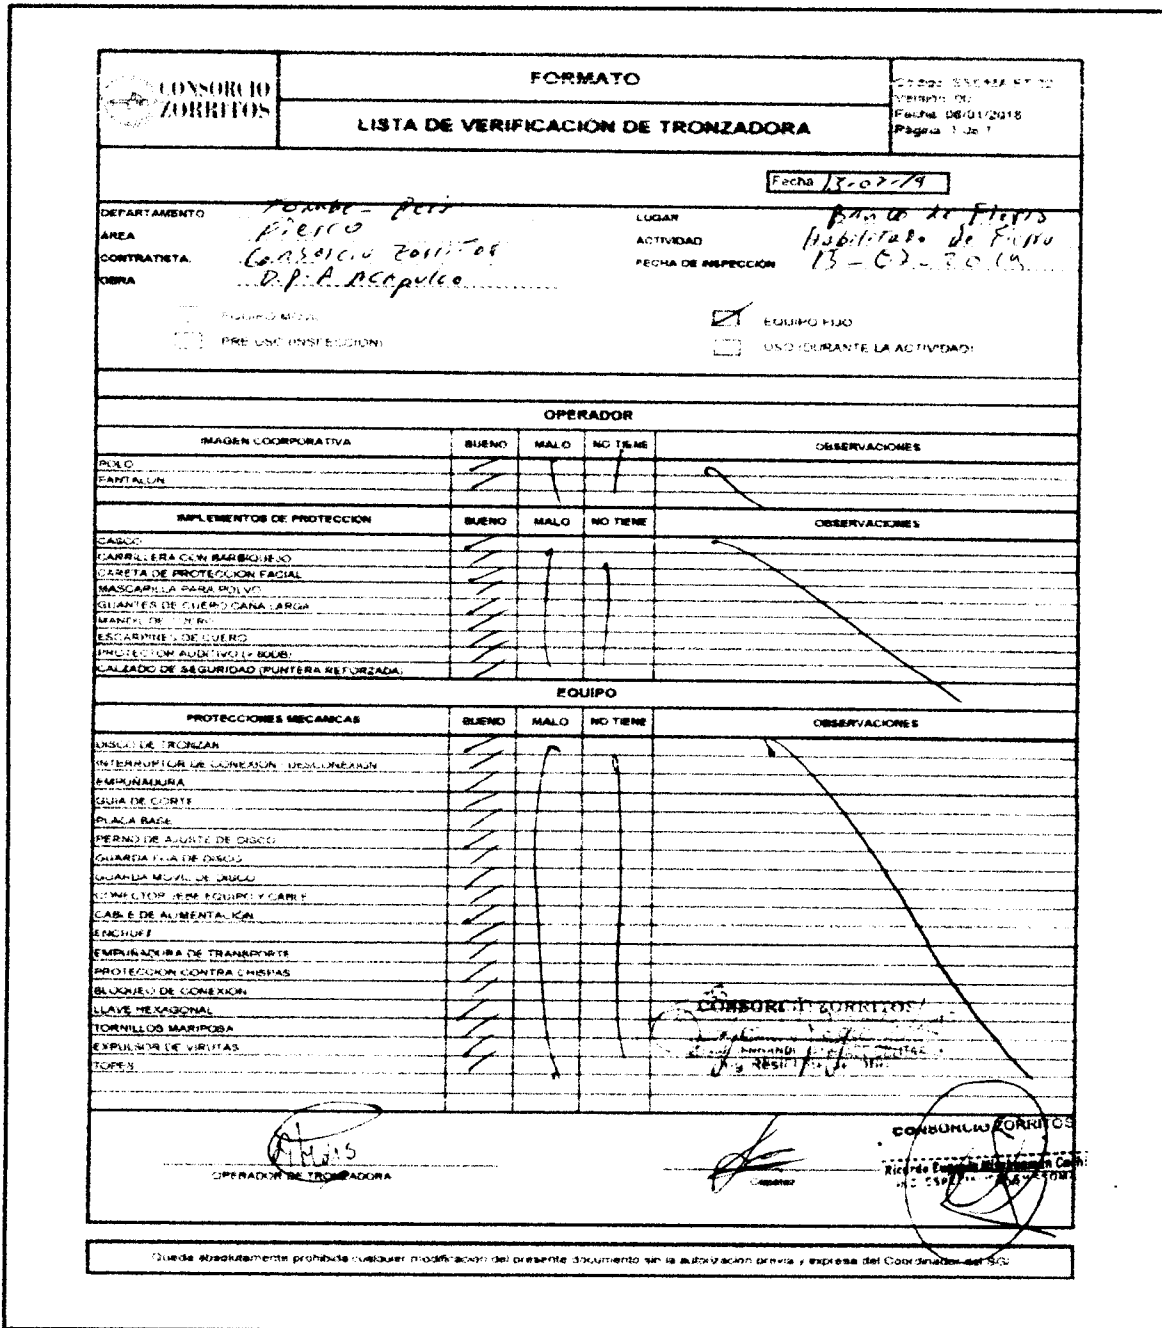 CONSORCIO
ZORRITOS
FORMATO
LISTA DE VERIFICACION DE TRONZADORA
Fecha 06/01/2018
Página 1 de 1
Fecha 13-07-19
DEPARTAMENTO
AREA Fierro
CONTRATISTA. Consorcio Zorritos
OBRA D.P.A Acapulco
LUGAR Banco de Fierro
ACTIVIDAD Habilitado de Fierro
FECHA DE INSPECCIÓN 13-07-2019
EQUIPO MOVIL
EQUIPO FIJO
PRE USO (INSPECCION)
USO (DURANTE LA ACTIVIDAD)
OPERADOR
IMAGEN COORPORATIVA BUENO MALO NO TIENE OBSERVACIONES
POLO
PANTALON
IMPLEMENTOS DE PROTECCION BUENO MALO NO TIENE OBSERVACIONES
CASCO
CARRILLERA CON BARBIQUEJO
CARETA DE PROTECCION FACIAL
MASCARILLA PARA POLVO
GUANTES DE CUERO CAÑA LARGA
MANDIL DE CUERO
ESCARPINES DE CUERO
PROTECTOR AUDITIVO (> 80DB)
CALZADO DE SEGURIDAD (PUNTERA REFORZADA)
EQUIPO
PROTECCIONES MECANICAS BUENO MALO NO TIENE OBSERVACIONES
DISCO DE TRONZAR
INTERRUPTOR DE CONEXION - DESCONEXION
EMPUÑADURA
GUIA DE CORTE
PLACA BASE
PERNO DE AJUSTE DE DISCO
GUARDA FIJA DE DISCO
GUARDA MOVIL DE DISCO
CONECTOR EQUIPO Y CABLE
CABLE DE ALIMENTACIÓN
ENCHUFE
EMPUÑADURA DE TRANSPORTE
PROTECCION CONTRA CHISPAS
BLOQUEO DE CONEXION
LLAVE HEXAGONAL
TORNILLOS MARIPOSA
EXPULSOR DE VIRUTAS
TOPES
CONSORCIO ZORRITOS
OPERADOR DE TRONZADORA
Capataz
CONSORCIO ZORRITOS
Ricardo
Queda absolutamente prohibida cualquier modificación del presente documento sin la autorización previa y expresa del Coordinador del SGI